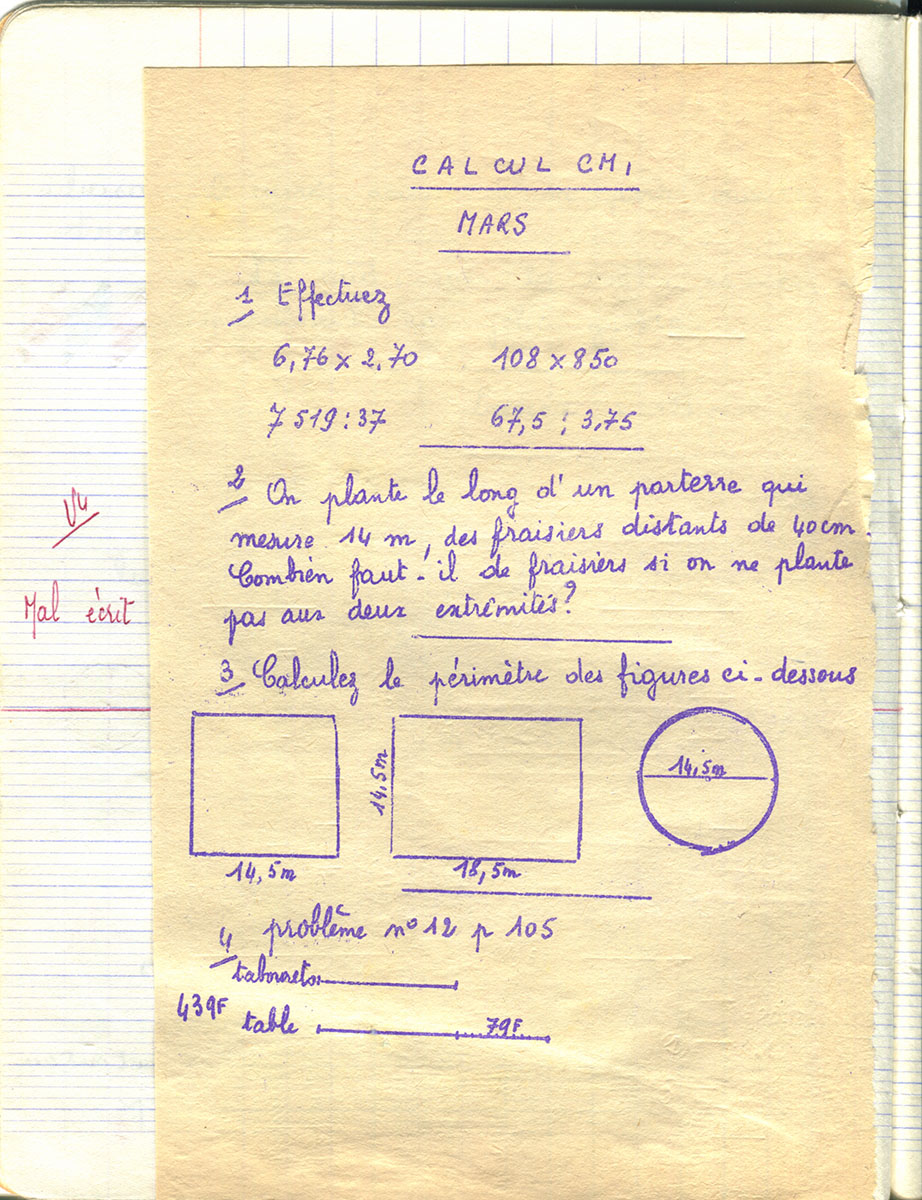 CALCUL CM1
MARS
1 Effectuez
6,76 x 2.70 108 x 850
7 519 : 37 67,5 : 3,75
2 On plante le long d'un parterre qui
mesure 14 m, des fraisiers distants de 40 cm.
Combien faut-il de fraisiers si on ne plante
pas aux deux extrêmités?
Vu
Mal écrit
3 Calculez le périmètre des figures ci-dessous
14,5m
14,5m
18,5m
14,5m
4 problême n° 12 p 105
tabourets
439F
table 79F